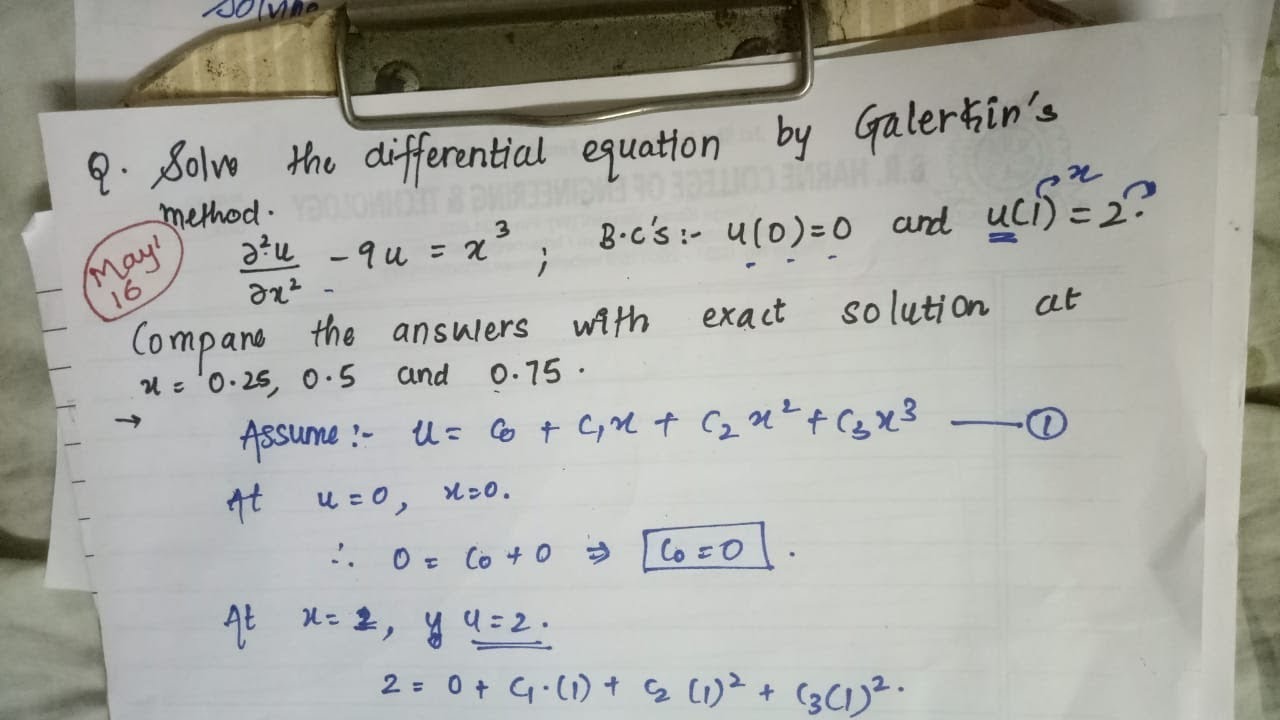 Solving
Q. Solve the differential equation by Galerkin's
method.
May' 16
∂²u/∂x² - 9u = x³ ; B.C's :- u(0)=0 and u(1)=2.
x
Compare the answers with exact solution at
x = 0.25, 0.5 and 0.75.
→ Assume :- u = C₀ + C₁x + C₂x² + C₃x³ — ①
At u=0, x=0.
∴ 0 = C₀ + 0 ⇒ C₀ = 0 .
At x= 1, y u=2.
2 = 0 + C₁.(1) + C₂ (1)² + C₃(1)².